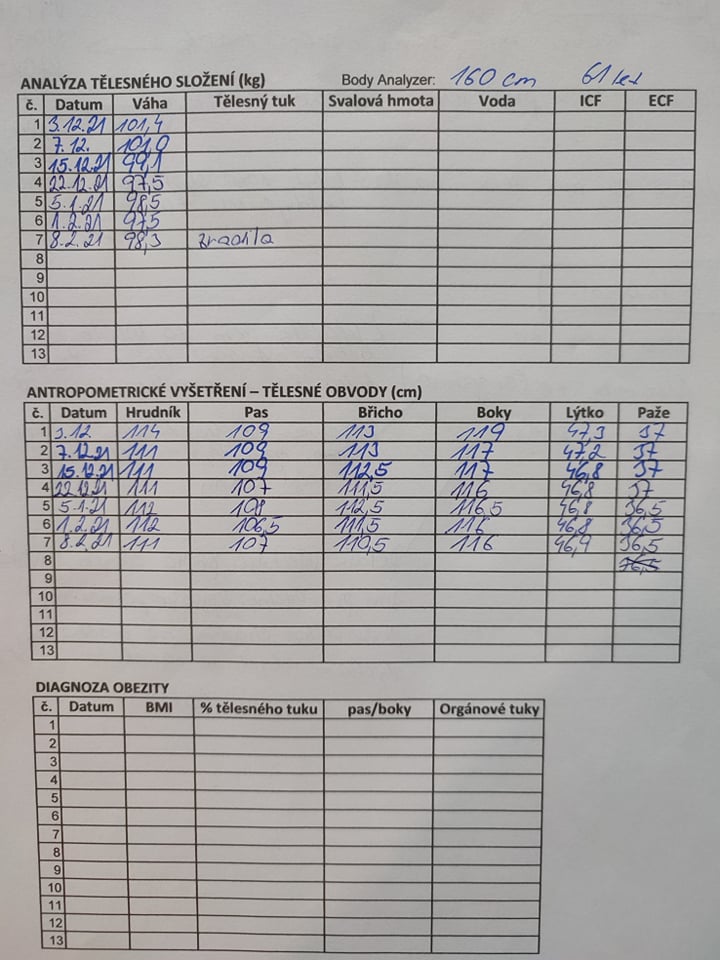 ANALÝZA TĚLESNÉHO SLOŽENÍ (kg) Body Analyzer: 160 cm 61 let
č. Datum Váha Tělesný tuk Svalová hmota Voda ICF ECF
1 3.12.21 101,4
2 7.12. 101,0
3 15.12.21 99,1
4 22.12.21 97,5
5 5.1.21 98,5
6 1.2.21 97,5
7 8.2.21 98,3 zradila
8
9
10
11
12
13
ANTROPOMETRICKÉ VYŠETŘENÍ – TĚLESNÉ OBVODY (cm)
č. Datum Hrudník Pas Břicho Boky Lýtko Paže
1 3.12 114 109 113 119 47,3 37
2 7.12.21 111 109 113 117 47,2 37
3 15.12.21 111 109 112,5 117 46,8 37
4 22.12.21 111 107 111,5 116 46,8 37
5 5.1.21 112 108 112,5 116,5 46,8 36,5
6 1.2.21 112 106,5 111,5 116 46,8 36,5
7 8.2.21 111 107 110,5 116 46,9 36,5
8 36,5
9
10
11
12
13
DIAGNOZA OBEZITY
č. Datum BMI % tělesného tuku pas/boky Orgánové tuky
1
2
3
4
5
6
7
8
9
10
11
12
13